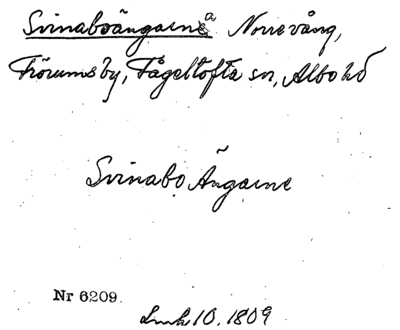 Svinaboängarna Norrevång,
Frörumsby, Fågeltofta sn, Albo hd
Svinabo Ängarne
Nr 6209.
Lmk 10. 1809